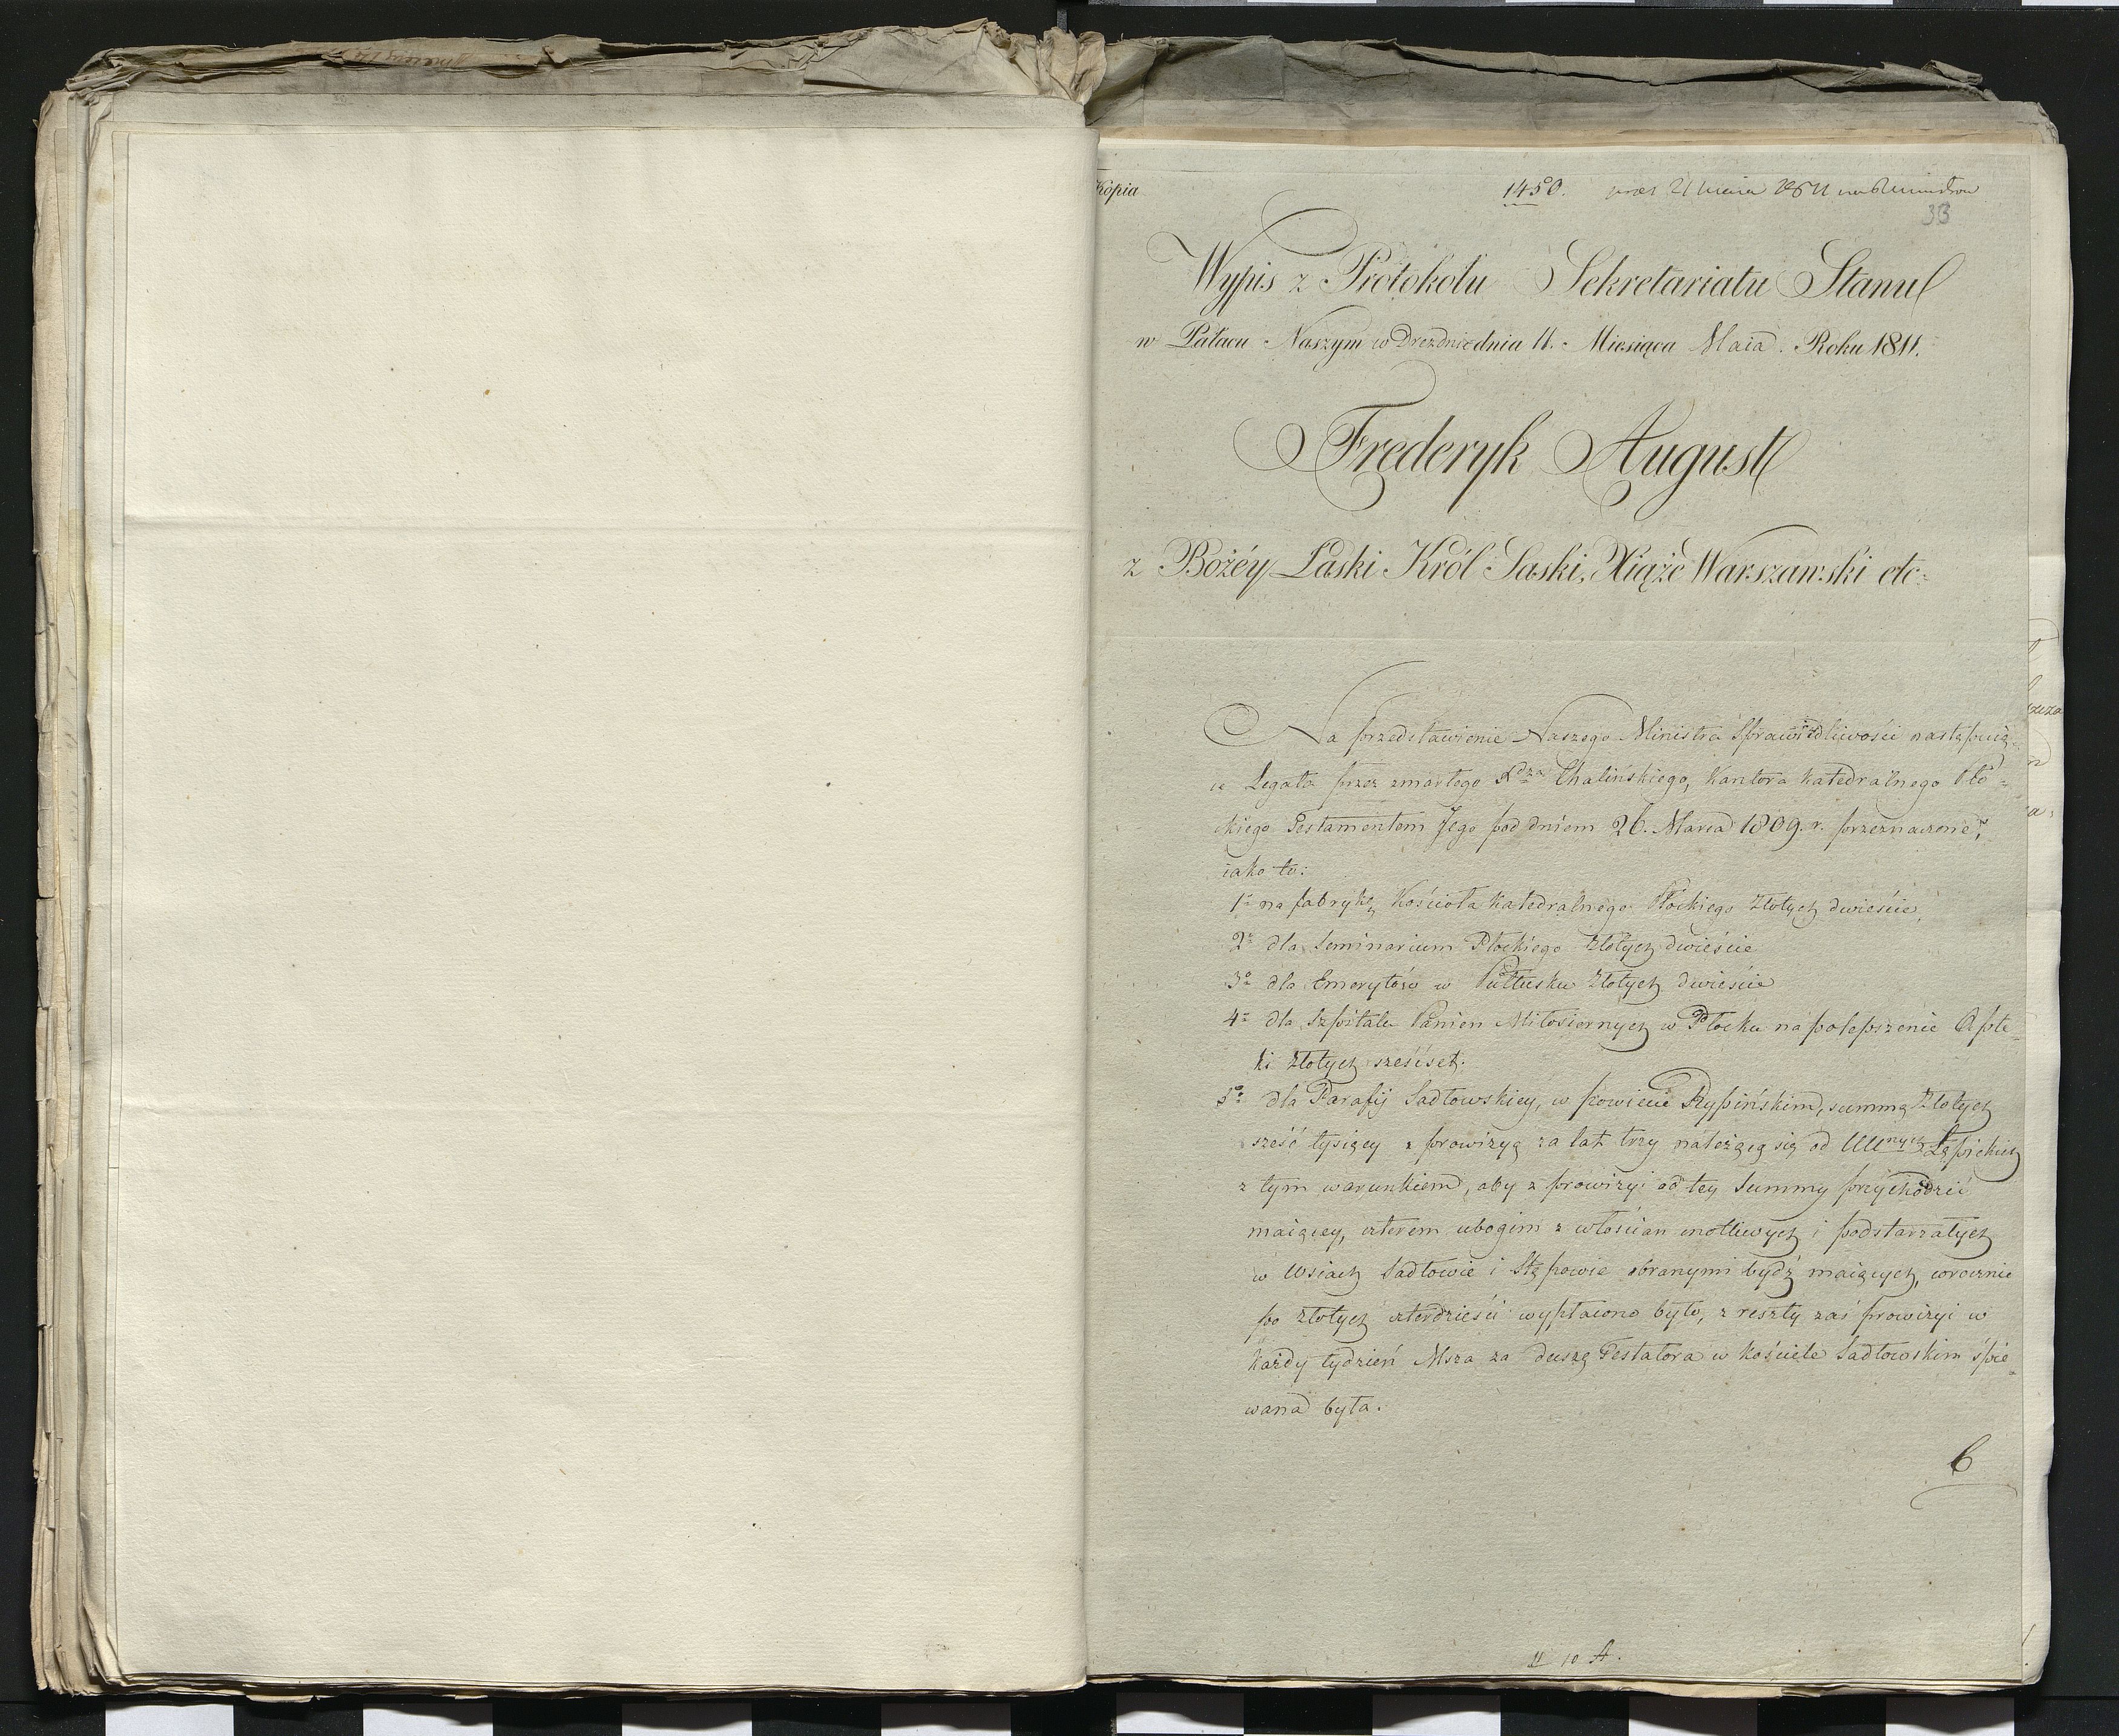 Kopia
1450. 21 Maia 1811
33
Wypis z Protokołu Sekretariatu Stanu
w Pałacu Naszym w Dreźnie dnia 11. Miesiąca Maia. Roku 1811.
Frederyk August
z Bożéy Łaski Król Saski, Xiąże Warszawski etc.
Na przedstawienie Naszego Ministra Sprawiedliwości następuią-
ce Legata przez zmarłego Xdza Chalińskiego, Kantora Katedralnego Pło-
ckiego Testamentem Jego pod dniem 26. Marca 1809. r. przeznaczone,
iako to:
1o na fabrykę Kościoła Katedralnego Płockiego Złotych dwieście,
2o dla Seminarium Płockiego Złotych dwieście
3o dla Emerytów w Pułtusku Złotych dwieście
4o dla Szpitalu Panien Miłosiernych w Płocku na polepszenie Apte-
ki Złotych sześćset.
5o dla Parafij Sadłowskiey, w powiecie Rypińskim, summę Złotych
sześć tysięcy z prowizyą za lat trzy należącą się od
z tym warunkiem, aby z prowizyi od tey Summy przychodzić
maiącey, czterem ubogim z włościan cnotliwych i podstarzałych
w Wsiach Sadłowie i Stępowie obranymi bydź maiących, corocznie
po złotych czterdzieści wypłacono było, z reszty zaś prowizyi w
każdy tydzień Msza za duszę Testatora w kościele Sadłowskim śpie-
wana była.
6
10 A.